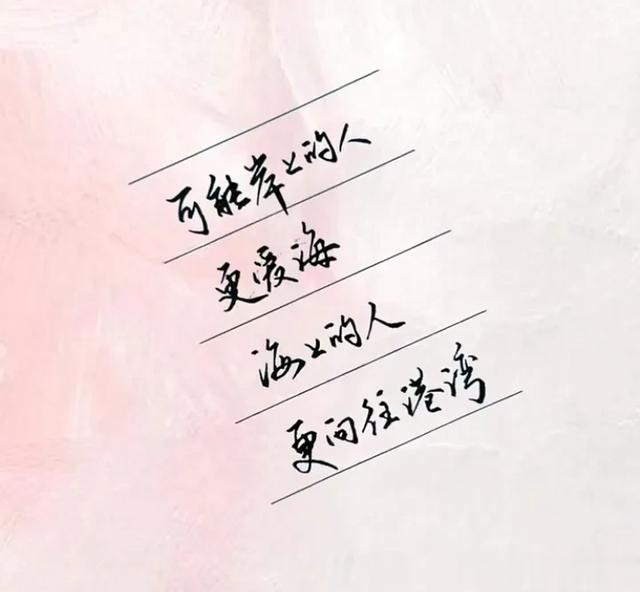 可能岸上的人
更爱海
海上的人
更向往港湾